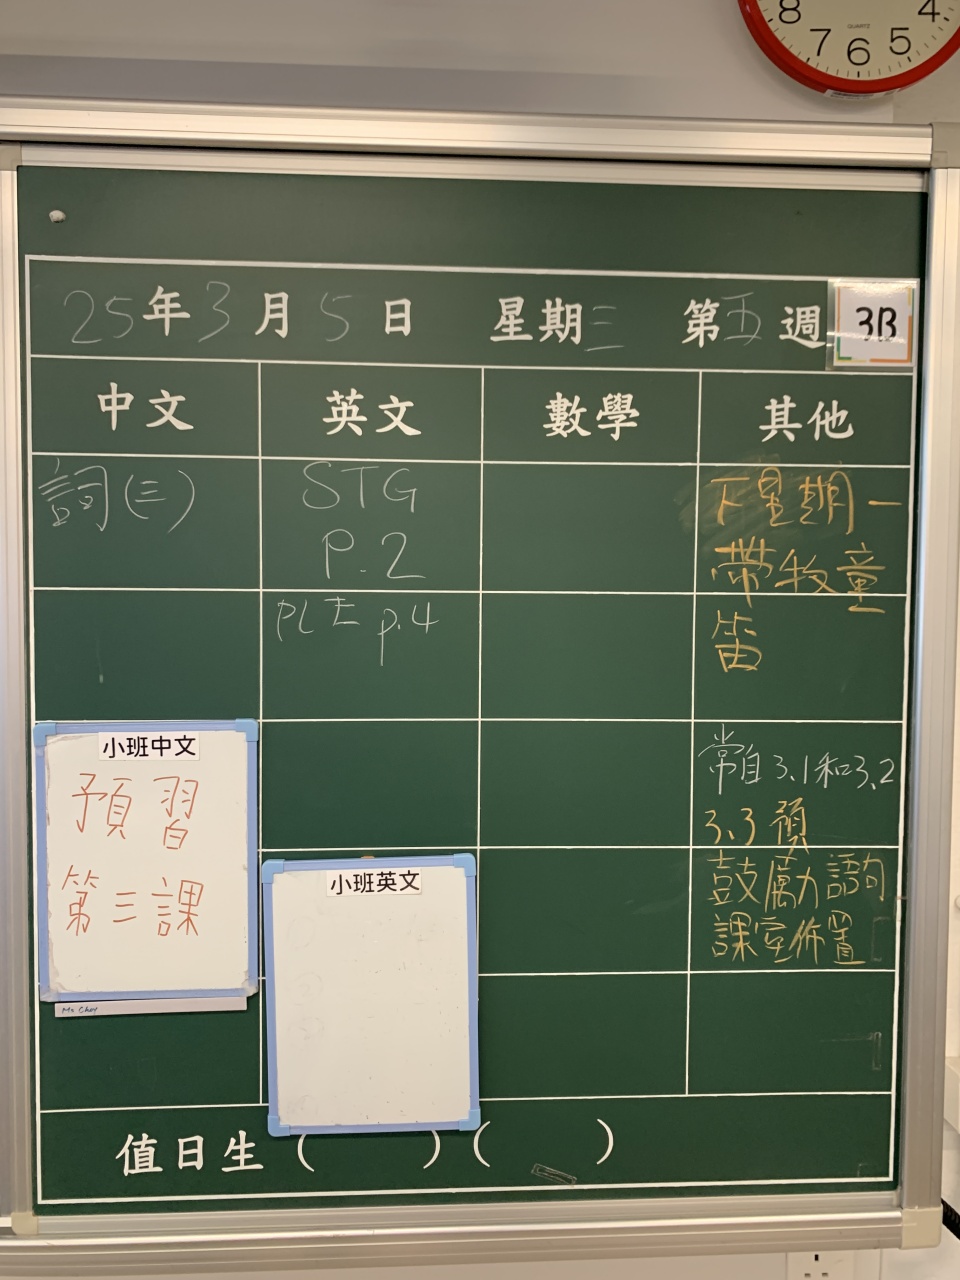 8 7 6 5 4
QUARTZ
25年3月5日 星期三 第五週 3B
中文 英文 數學 其他
詞(三)
STG
P.2
PL士 p.4
下星期一
帶牧童
笛
常自3.1和3.2
3.3 預
鼓勵語句
課室佈置
小班中文
預習
第三課
Ms Choy
小班英文
值日生 ( ) ( )